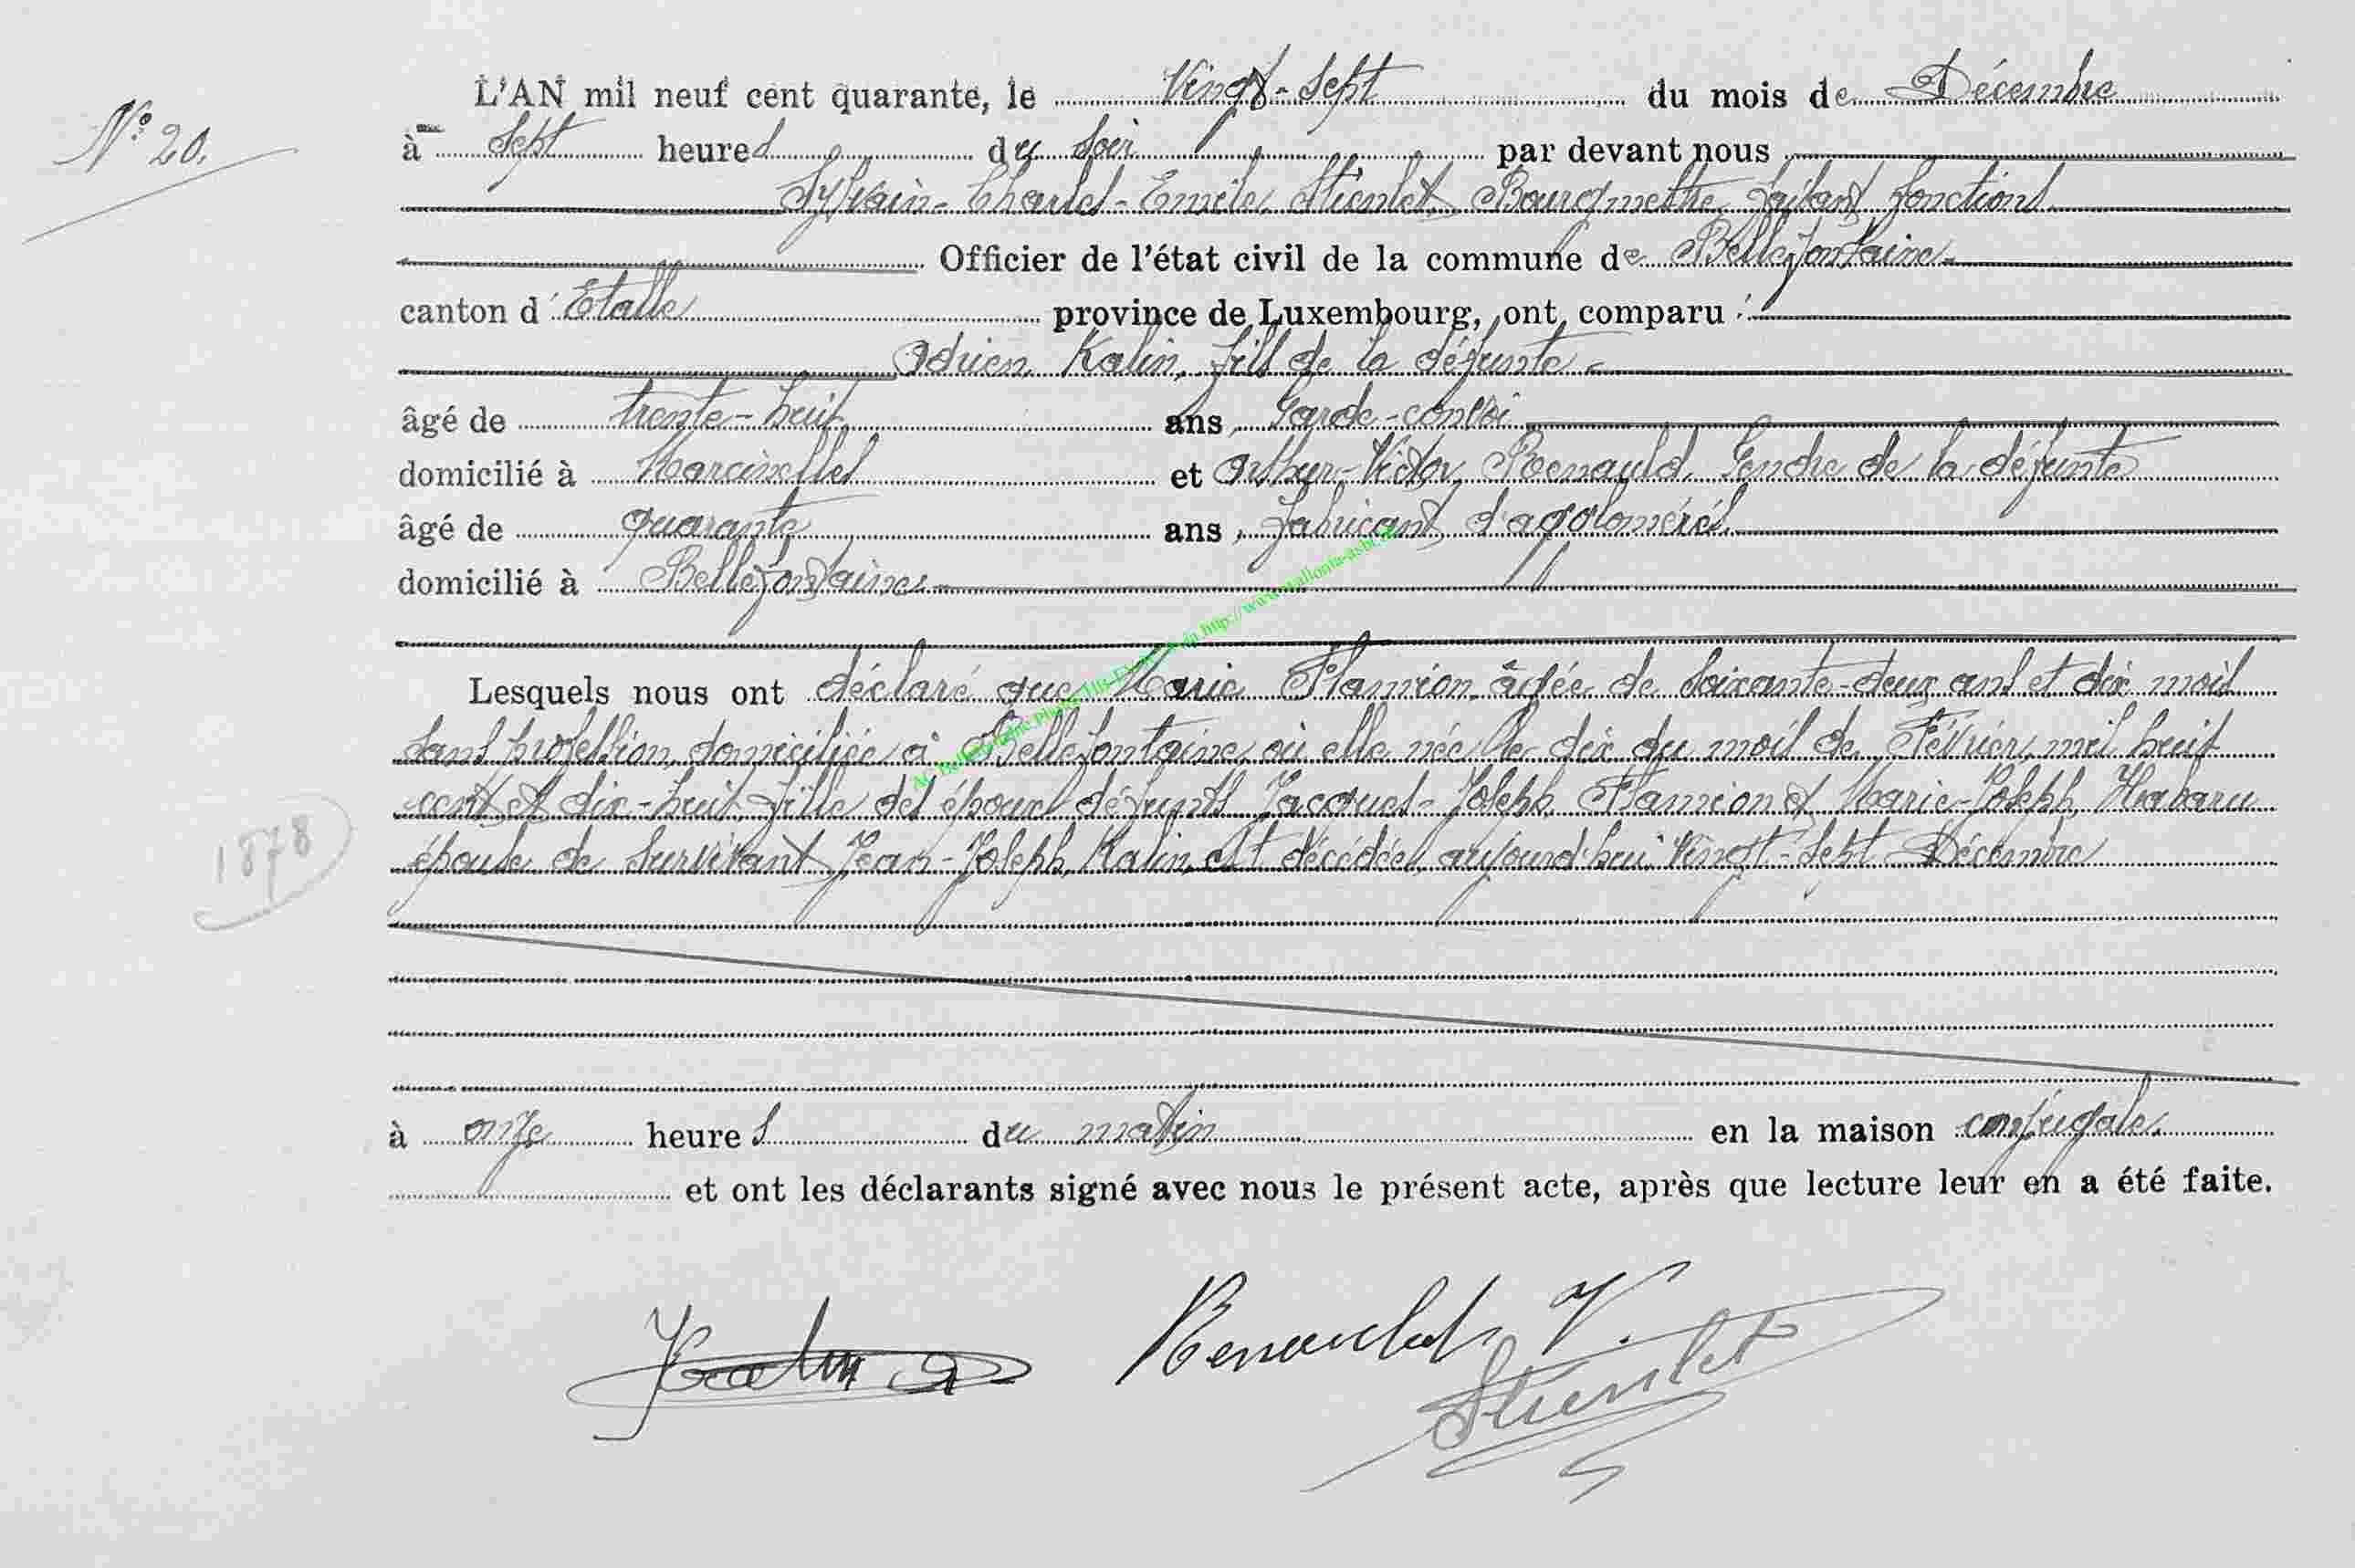 N° 20.
L'AN mil neuf cent quarante, le Vingt-Sept du mois de Décembre
à Sept heures du Soir par devant nous
Sylvain-Charles-Emile, Stienlet, Bourgmestre faisant fonctions
Officier de l'état civil de la commune de Bellefontaine
canton d'Etalle province de Luxembourg, ont comparu :
Adrien Kalin, fils de la défunte
âgé de trente-huit ans, Garde-convoi
domicilié à Marcinelles et Arthur-Victor, Roenauld, Gendre de la défunte
âgé de quarante ans, fabricant d'agglomérés
domicilié à Bellefontaine
Lesquels nous ont déclaré que Marie Flamion, âgée de soixante-deux ans et dix mois
sans profession, domiciliée à Bellefontaine, où elle née le dix du mois de Février, mil huit
cent et dix-huit, fille des époux défunts Jacques-Joseph, Flamion et Marie-Joseph, Habaru
épouse de survivant Jean-Joseph, Kalin, est décédée, aujourd'hui Vingt-Sept Décembre
1878
à onze heures du matin en la maison conjugale.
et ont les déclarants signé avec nous le présent acte, après que lecture leur en a été faite.
Kalin A
Renauld V.
Stienlet